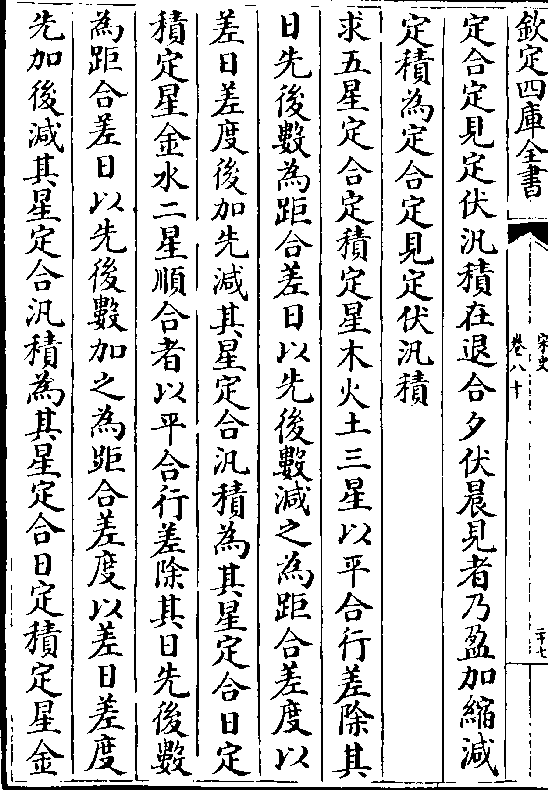 欽定四庫全書
宋史
卷八十
二十七
定合定見定伏汎積在退合夕伏晨見者乃盈加縮減
定積為定合定見定伏汎積
求五星定合定積定星木火土三星以平合行差除其
日先後數為距合差日以先後數減之為距合差度以
差日差度後加先減其星定合汎積為其星定合日定
積定星金水二星順合者以平合行差除其日先後數
為距合差日以先後數加之為距合差度以差日差度
先加後減其星定合汎積為其星定合日定積定星金